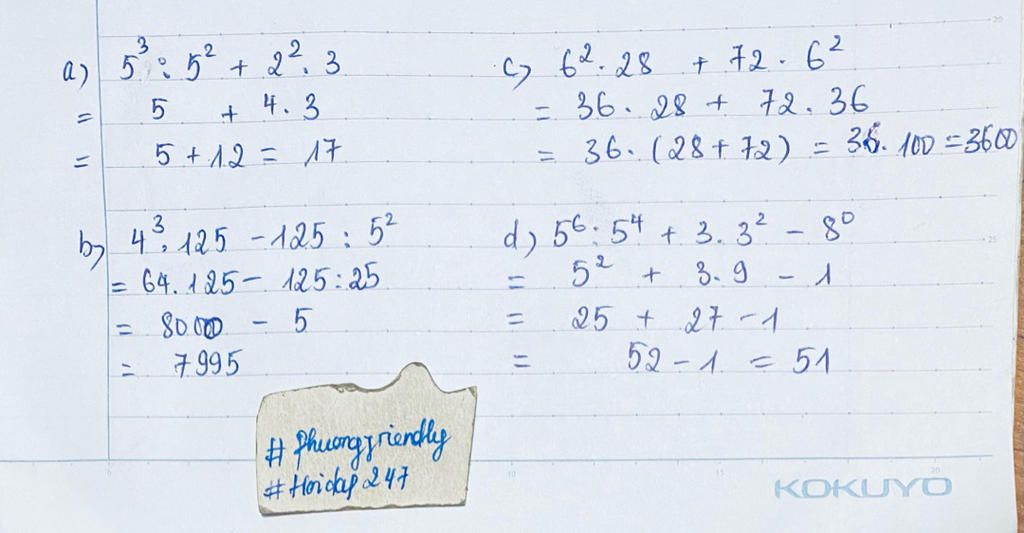 a) 5³ : 5² + 2² . 3
= 5 + 4 . 3
= 5 + 12 = 17
b) 4³ . 125 - 125 : 5²
= 64 . 125 - 125 : 25
= 8000 - 5
= 7995
c) 6² . 28 + 72 . 6²
= 36 . 28 + 72 . 36
= 36 . (28 + 72) = 36 . 100 = 3600
d) 5⁶ : 5⁴ + 3 . 3² - 8⁰
= 5² + 3 . 9 - 1
= 25 + 27 - 1
= 52 - 1 = 51
# phuongfriendly
# Hoidap 247
KOKUYO